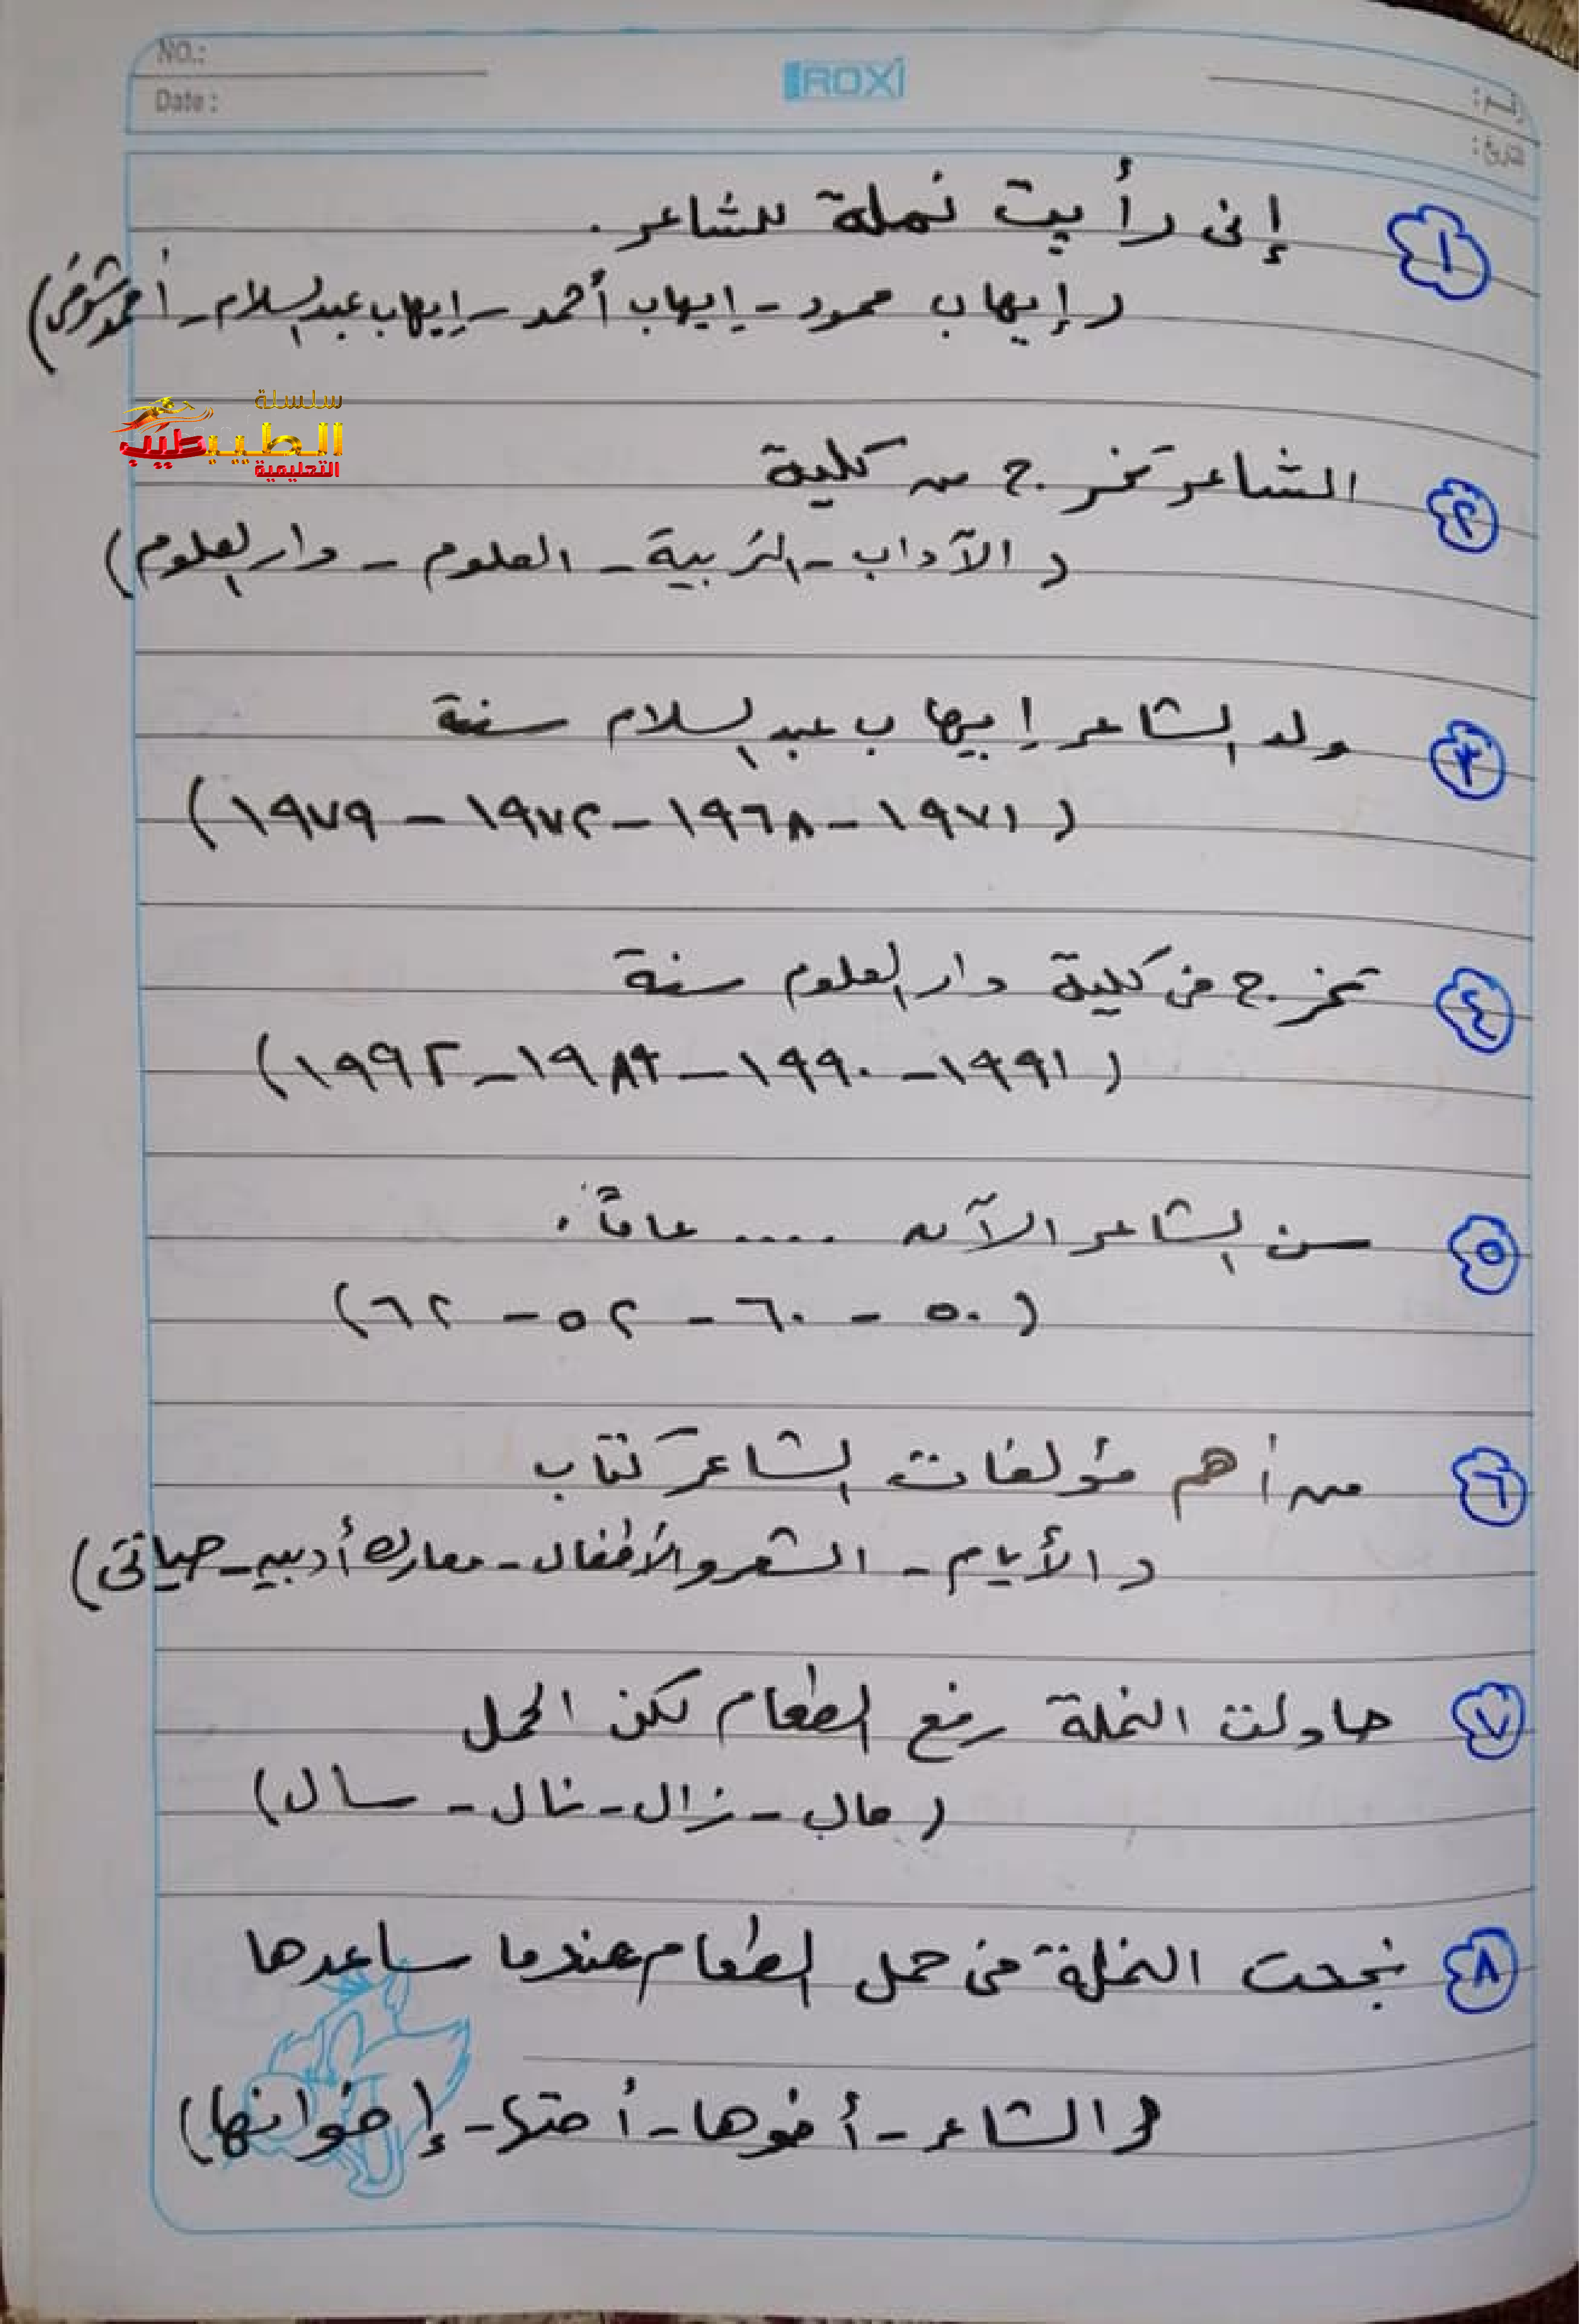 NO.:
Date :
ROXI
رقم :
تاريخ :
١ إنى رأيت نملة للشاعر .
( إيهاب محمود - إيهاب أحمد - إيهاب عبد السلام - أحمد شوقى )
سلسلة
الطبيب
التعليمية
٢ الشاعر تخرج من كلية
( الآداب - التربية - العلوم - دار العلوم )
٣ ولد الشاعر إيهاب عبد السلام سنة
( ١٩٧١ - ١٩٦٨ - ١٩٧٢ - ١٩٧٩ )
٤ تخرج فى كلية دار العلوم سنة
( ١٩٩١ - ١٩٩٠ - ١٩٨٩ - ١٩٩٢ )
٥ سن الشاعر الآن .... عامًا .
( ٥٠ - ٦٠ - ٥٢ - ٦٢ )
٦ من أهم مؤلفات الشاعر كتاب
( الأيام - الشعر والأطفال - معارك أدبية - حياتى )
٧ حاولت النملة رفع الطعام لكن الحمل
( مال - زال - نال - سال )
٨ نجحت النملة فى حمل الطعام عندما ساعدها
( الشاعر - أخوها - أختها - إخوانها )